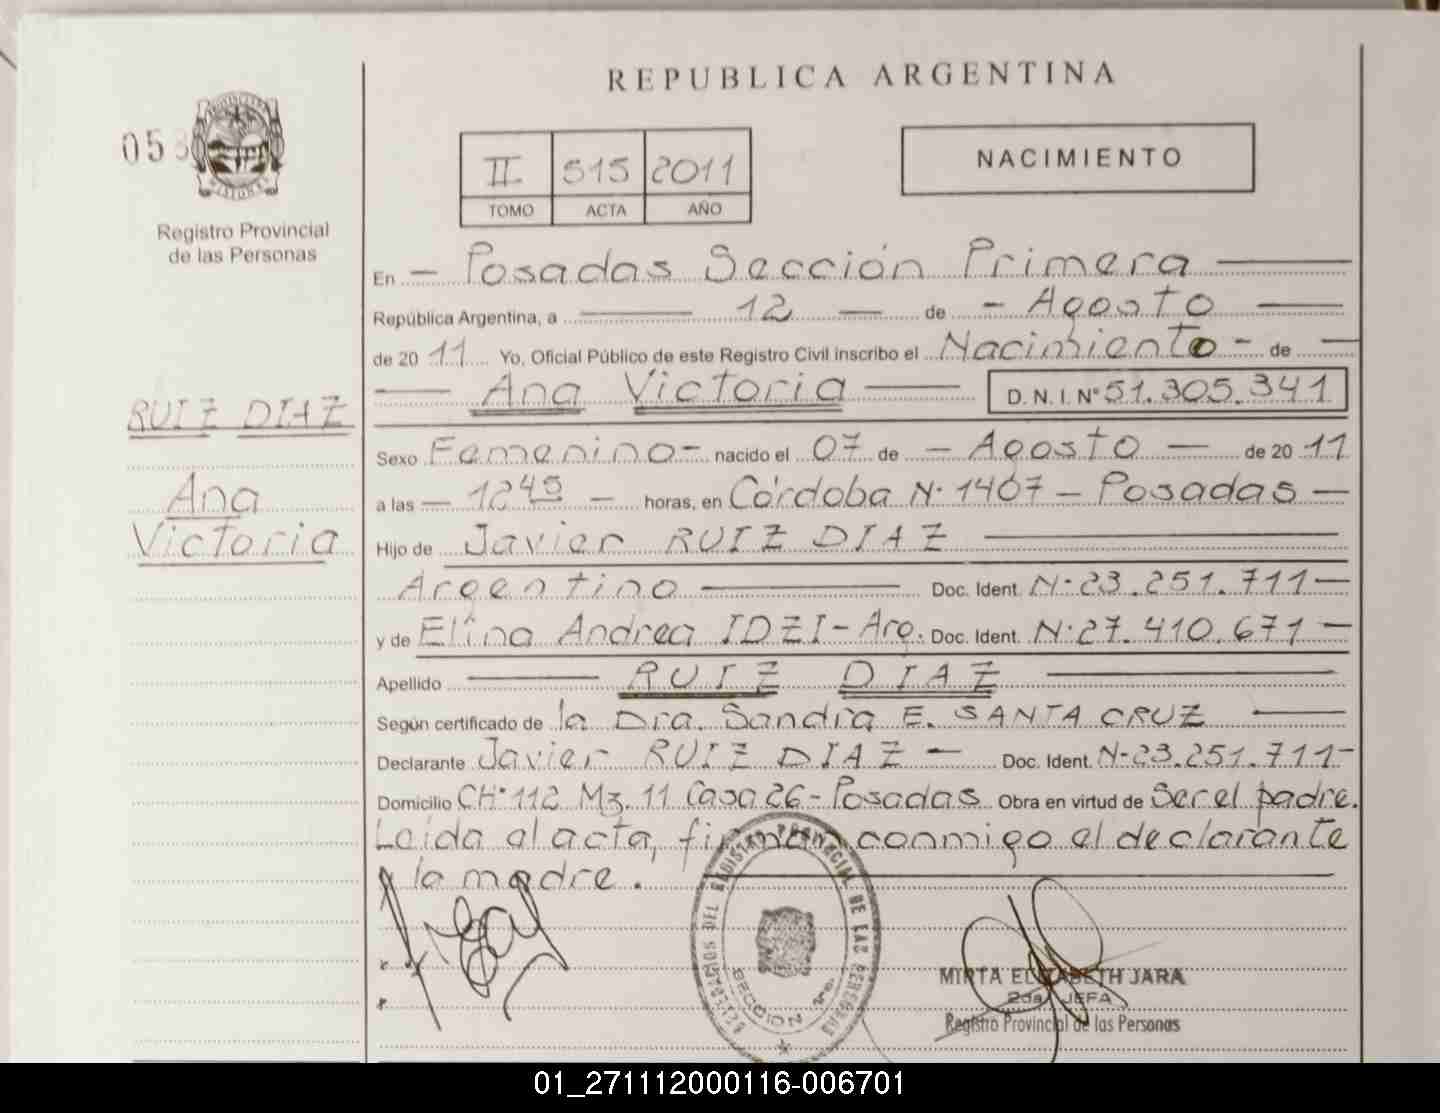 REPUBLICA ARGENTINA
05
PROVINCIA
MISIONES
Registro Provincial
de las Personas
II 515 2011
TOMO ACTA AÑO
NACIMIENTO
En — Posadas Sección Primera —
República Argentina, a — 12 — de — Agosto —
de 2011 Yo, Oficial Público de este Registro Civil inscribo el Nacimiento — de —
— Ana Victoria — D.N.I. Nº 51.305.341
RUIZ DIAZ
Ana
Victoria
Sexo Femenino — nacido el 07 de — Agosto — de 2011
a las — 12 45 — horas, en Córdoba N° 1407 — Posadas —
Hijo de Javier RUIZ DIAZ —
Argentino — Doc. Ident. N° 23.251.711 —
y de Elina Andrea IDZI — Arg. Doc. Ident. N° 27.410.671 —
Apellido — RUIZ DIAZ —
Según certificado de la Dra. Sandra E. SANTA CRUZ —
Declarante Javier RUIZ DIAZ — Doc. Ident. N- 23.251.711 —
Domicilio CH° 112 Mz. 11 Casa 26 - Posadas Obra en virtud de Ser el padre.
Leída el acta, firman conmigo el declarante
la madre. —
DEL REGISTRO PROVINCIAL DE LAS PERSONAS
SECCION 1ra.
MIRTA ELIZABETH JARA
2da. JEFA
Registro Provincial de las Personas
01_271112000116-006701